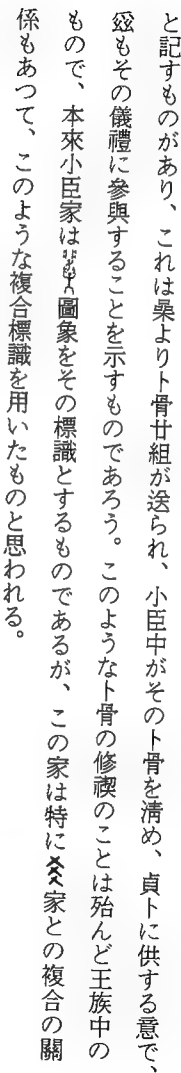 と記すものがあり、これは喿より卜骨廿組が送られ、小臣中がその卜骨を清め、貞卜に供する意で、
もその儀禮に參與することを示すものであろう。このような卜骨の修禊のことは殆んど王族中の
もので、本來小臣家は圖象をその標識とするものであるが、この家は特に家との複合の關
係もあつて、このような複合標識を用いたものと思われる。